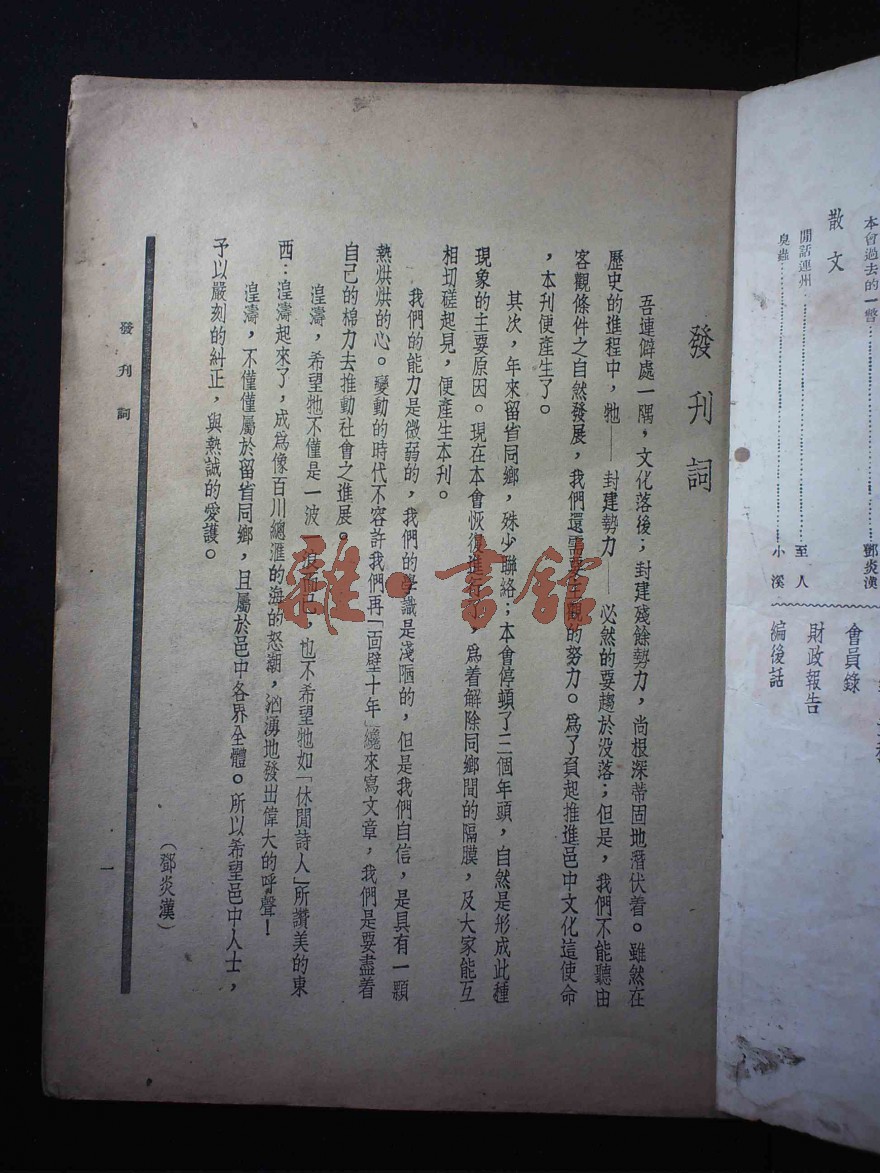 本會過去的一瞥…………鄧炎漢
散文
閒話連州…………至人
臭蟲…………小溪
會員錄
財政報告
編後話
發刊詞
吾連僻處一隅，文化落後；封建殘餘勢力，尚根深蒂固地潛伏着。雖然在
歷史的進程中，牠——封建勢力——必然的要趨於没落；但是，我們不能聽由
客觀條件之自然發展，我們還需要主觀的努力。爲了負起推進邑中文化這使命
，本刊便產生了。
其次，年來留省同鄉，殊少聯絡；本會停頓了三個年頭，自然是形成此種
現象的主要原因。現在本會恢復進行了，爲着解除同鄉間的隔膜，及大家能互
相切磋起見，便產生本刊。
我們的能力是微弱的，我們的學識是淺陋的，但是我們自信，是具有一顆
熱烘烘的心。變動的時代不容許我們再「面壁十年」纔來寫文章，我們是要盡着
自己的棉力去推動社會之進展。
湟濤，希望牠不僅是一波一浪而已，也不希望牠如「休閒詩人」所讚美的東
西：湟濤起來了，成爲像百川總滙的海的怒潮，汹湧地發出偉大的呼聲！
湟濤，不僅僅屬於留省同鄉，且屬於邑中各界全體。所以希望邑中人士，
予以嚴刻的糾正，與熱誠的愛護。
（鄧炎漢）
發刊詞
一
雜·書館